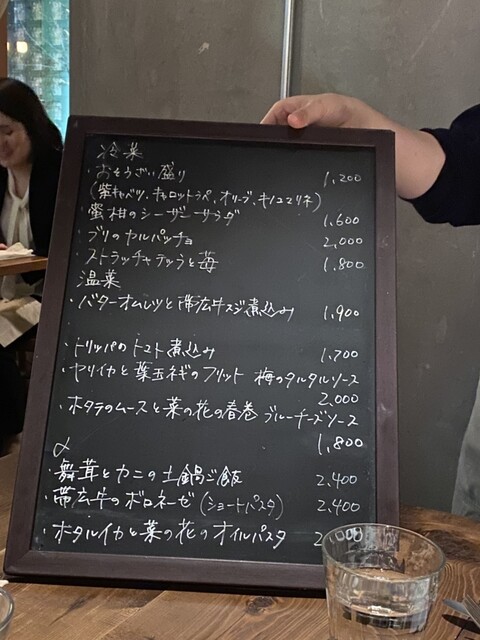 冷菜
・おそうざい盛り 1,200
(紫キャベツ、キャロットラペ、オリーブ、キノコマリネ)
・蜜柑のシーザーサラダ 1,600
・ブリのカルパッチョ 2,000
・ストラッチャテッラと苺 1,800
温菜
・バターオムレツと帯広牛スジ煮込み 1,900
・トリッパのトマト煮込み 1,700
・ヤリイカと葉玉ネギのフリット 梅のタルタルソース
2,000
・ホタテのムースと菜の花の春巻 ブルーチーズソース
1,800
〆
・舞茸とカニの土鍋ご飯 2,400
・帯広牛のボロネーゼ (ショートパスタ) 2,400
・ホタルイカと菜の花のオイルパスタ